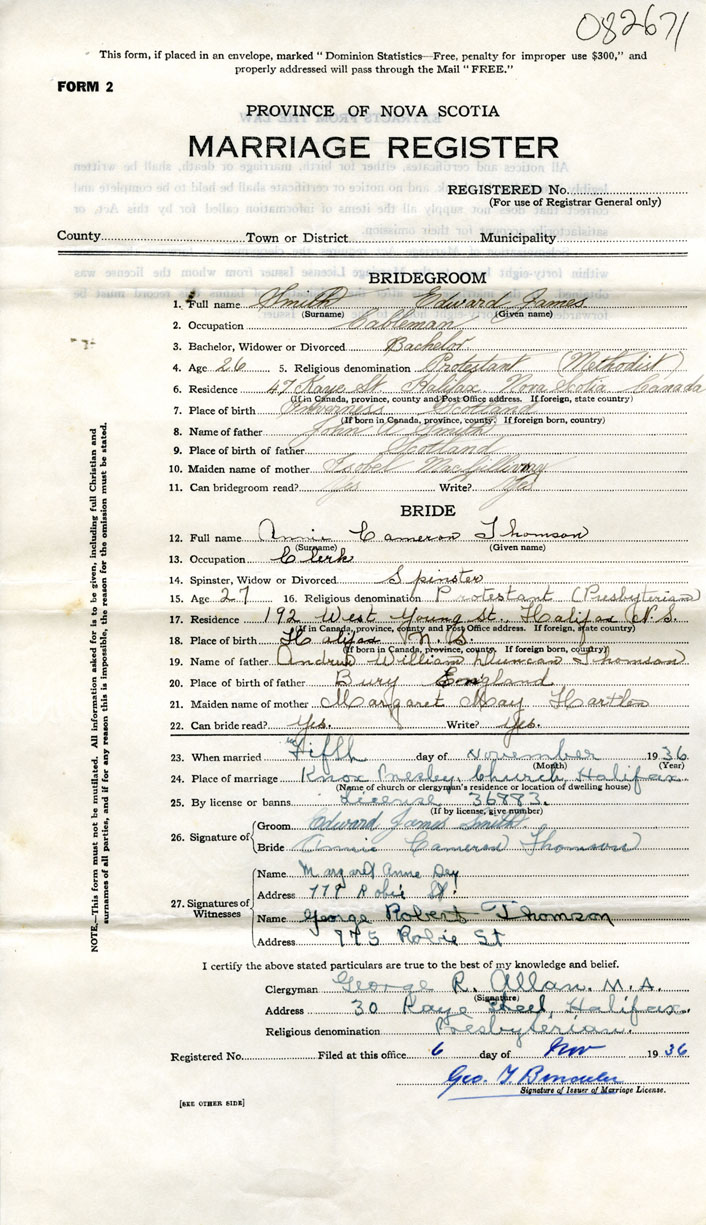 082671
This form, if placed in an envelope, marked "Dominion Statistics—Free, penalty for improper use $300," and
properly addressed will pass through the Mail "FREE."
FORM 2
PROVINCE OF NOVA SCOTIA
MARRIAGE REGISTER
REGISTERED No.
(For use of Registrar General only)
County Town or District Municipality
BRIDEGROOM
1. Full name Smith Edward James
(Surname) (Given name)
2. Occupation Cableman
3. Bachelor, Widower or Divorced Bachelor
4. Age 26 5. Religious denomination Protestant (Methodist)
6. Residence 47 Kaye St. Halifax Nova Scotia Canada
(If in Canada, province, county and Post Office address. If foreign, state country)
7. Place of birth Inverness Scotland
(If born in Canada, province, county. If foreign born, country)
8. Name of father John A. Smith
9. Place of birth of father Scotland
10. Maiden name of mother Isobel
11. Can bridegroom read? Yes Write? Yes
BRIDE
12. Full name Annie Cameron Thomson
(Surname) (Given name)
13. Occupation Clerk
14. Spinster, Widow or Divorced Spinster
15. Age 27 16. Religious denomination Protestant (Presbyterian)
17. Residence 192 West Young St., Halifax N.S.
(If in Canada, province, county and Post Office address. If foreign, state country)
18. Place of birth Halifax N.S.
(If born in Canada, province, county. If foreign born, country)
19. Name of father Andrew William Duncan Thomson
20. Place of birth of father Bury England
21. Maiden name of mother Margaret May Hartlen
22. Can bride read? Yes. Write? Yes.
23. When married Fifth day of November 1936
(Month) (Year)
24. Place of marriage Knox Presby. Church, Halifax.
(Name of church or clergyman's residence or location of dwelling house)
25. By license or banns License 36883.
(If by license, give number)
26. Signature of
Groom Edward James Smith.
Bride Annie Cameron Thomson
27. Signatures of Witnesses
Name Margaret Anne Dey
Address Robie St.
Name George Robert Thomson
Address 775 Robie St
I certify the above stated particulars are true to the best of my knowledge and belief.
Clergyman George R. Allan. M.A.
(Signature)
Address 30 Kaye Street, Halifax.
Religious denomination Presbyterian.
Registered No. Filed at this office 6 day of Nov 1936
Geo. T.
Signature of Issuer of Marriage License.
[SEE OTHER SIDE]
NOTE.—This form must not be mutilated. All information asked for is to be given, including full Christian and
surnames of all parties, and if for any reason this is impossible, the reason for the omission must be stated.